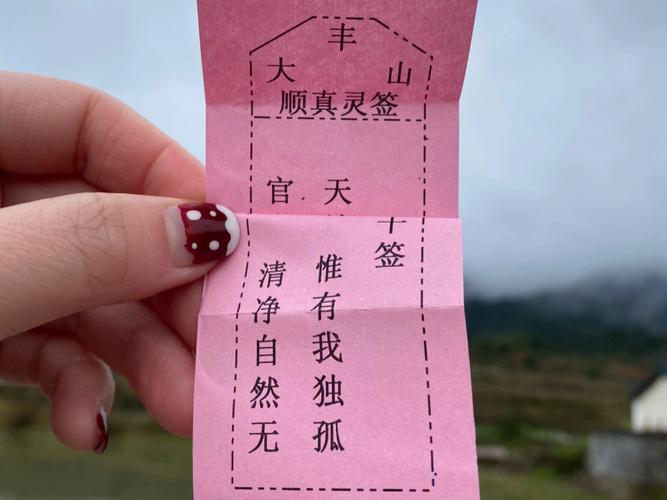 大丰山
顺真灵签
签
天 惟有我独孤
官 清净自然无